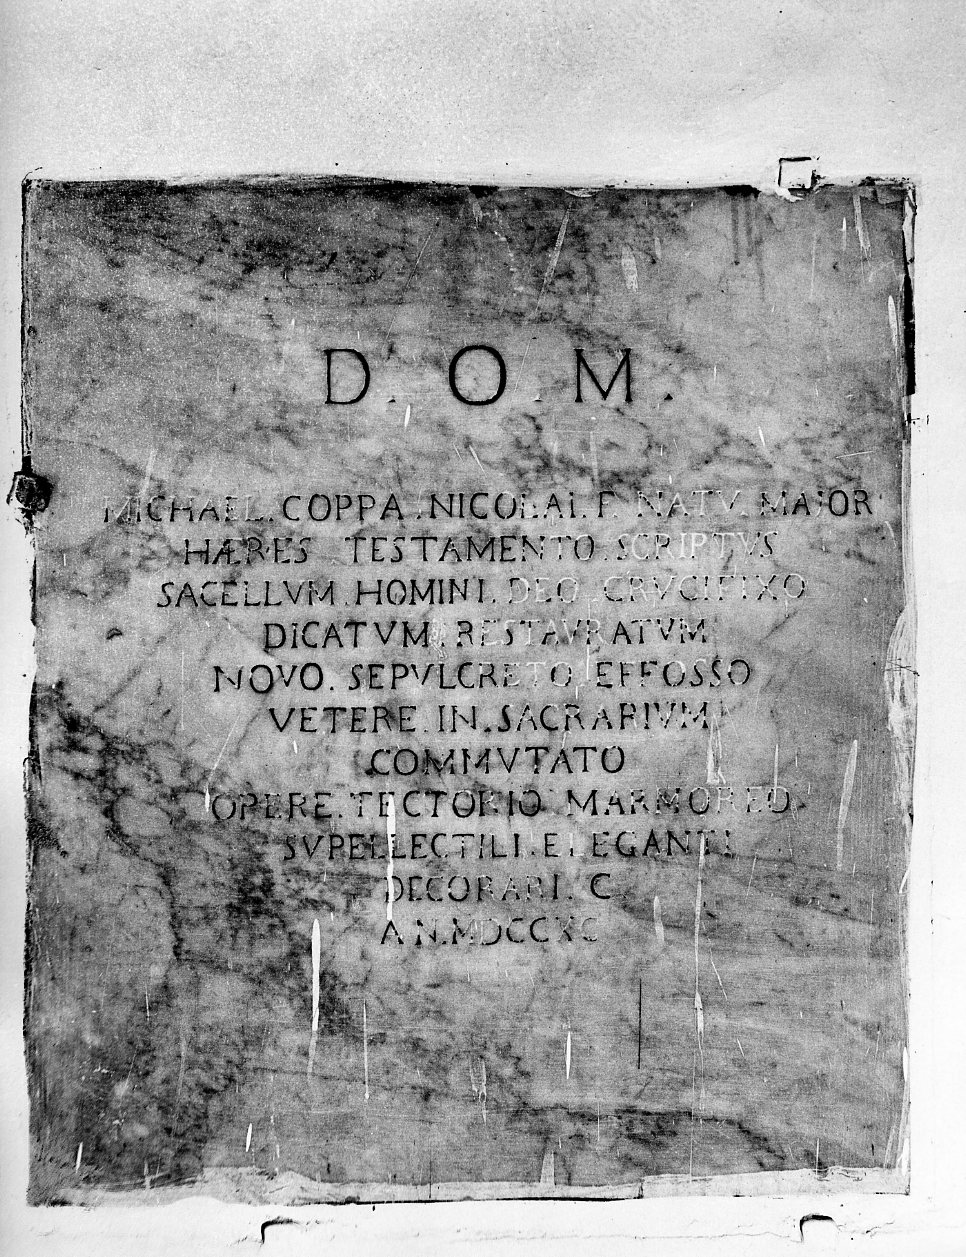 D. O. M.
MICHAEL. COPPA. NICOLAI. F. NATV. MAJOR
HÆRES TESTAMENTO SCRIPTVS
SACELLVM HOMINI. DEO. CRVCIFIXO
DICATVM RESTAVRATVM
NOVO. SEPVLCRETO EFFOSSO
VETERE. IN. SACRARIVM
COMMVTATO
OPERE. TECTORIO MARMOREO
SVPELLECTILI. ELEGANTI
DECORARI. C
AN. MDCCXC